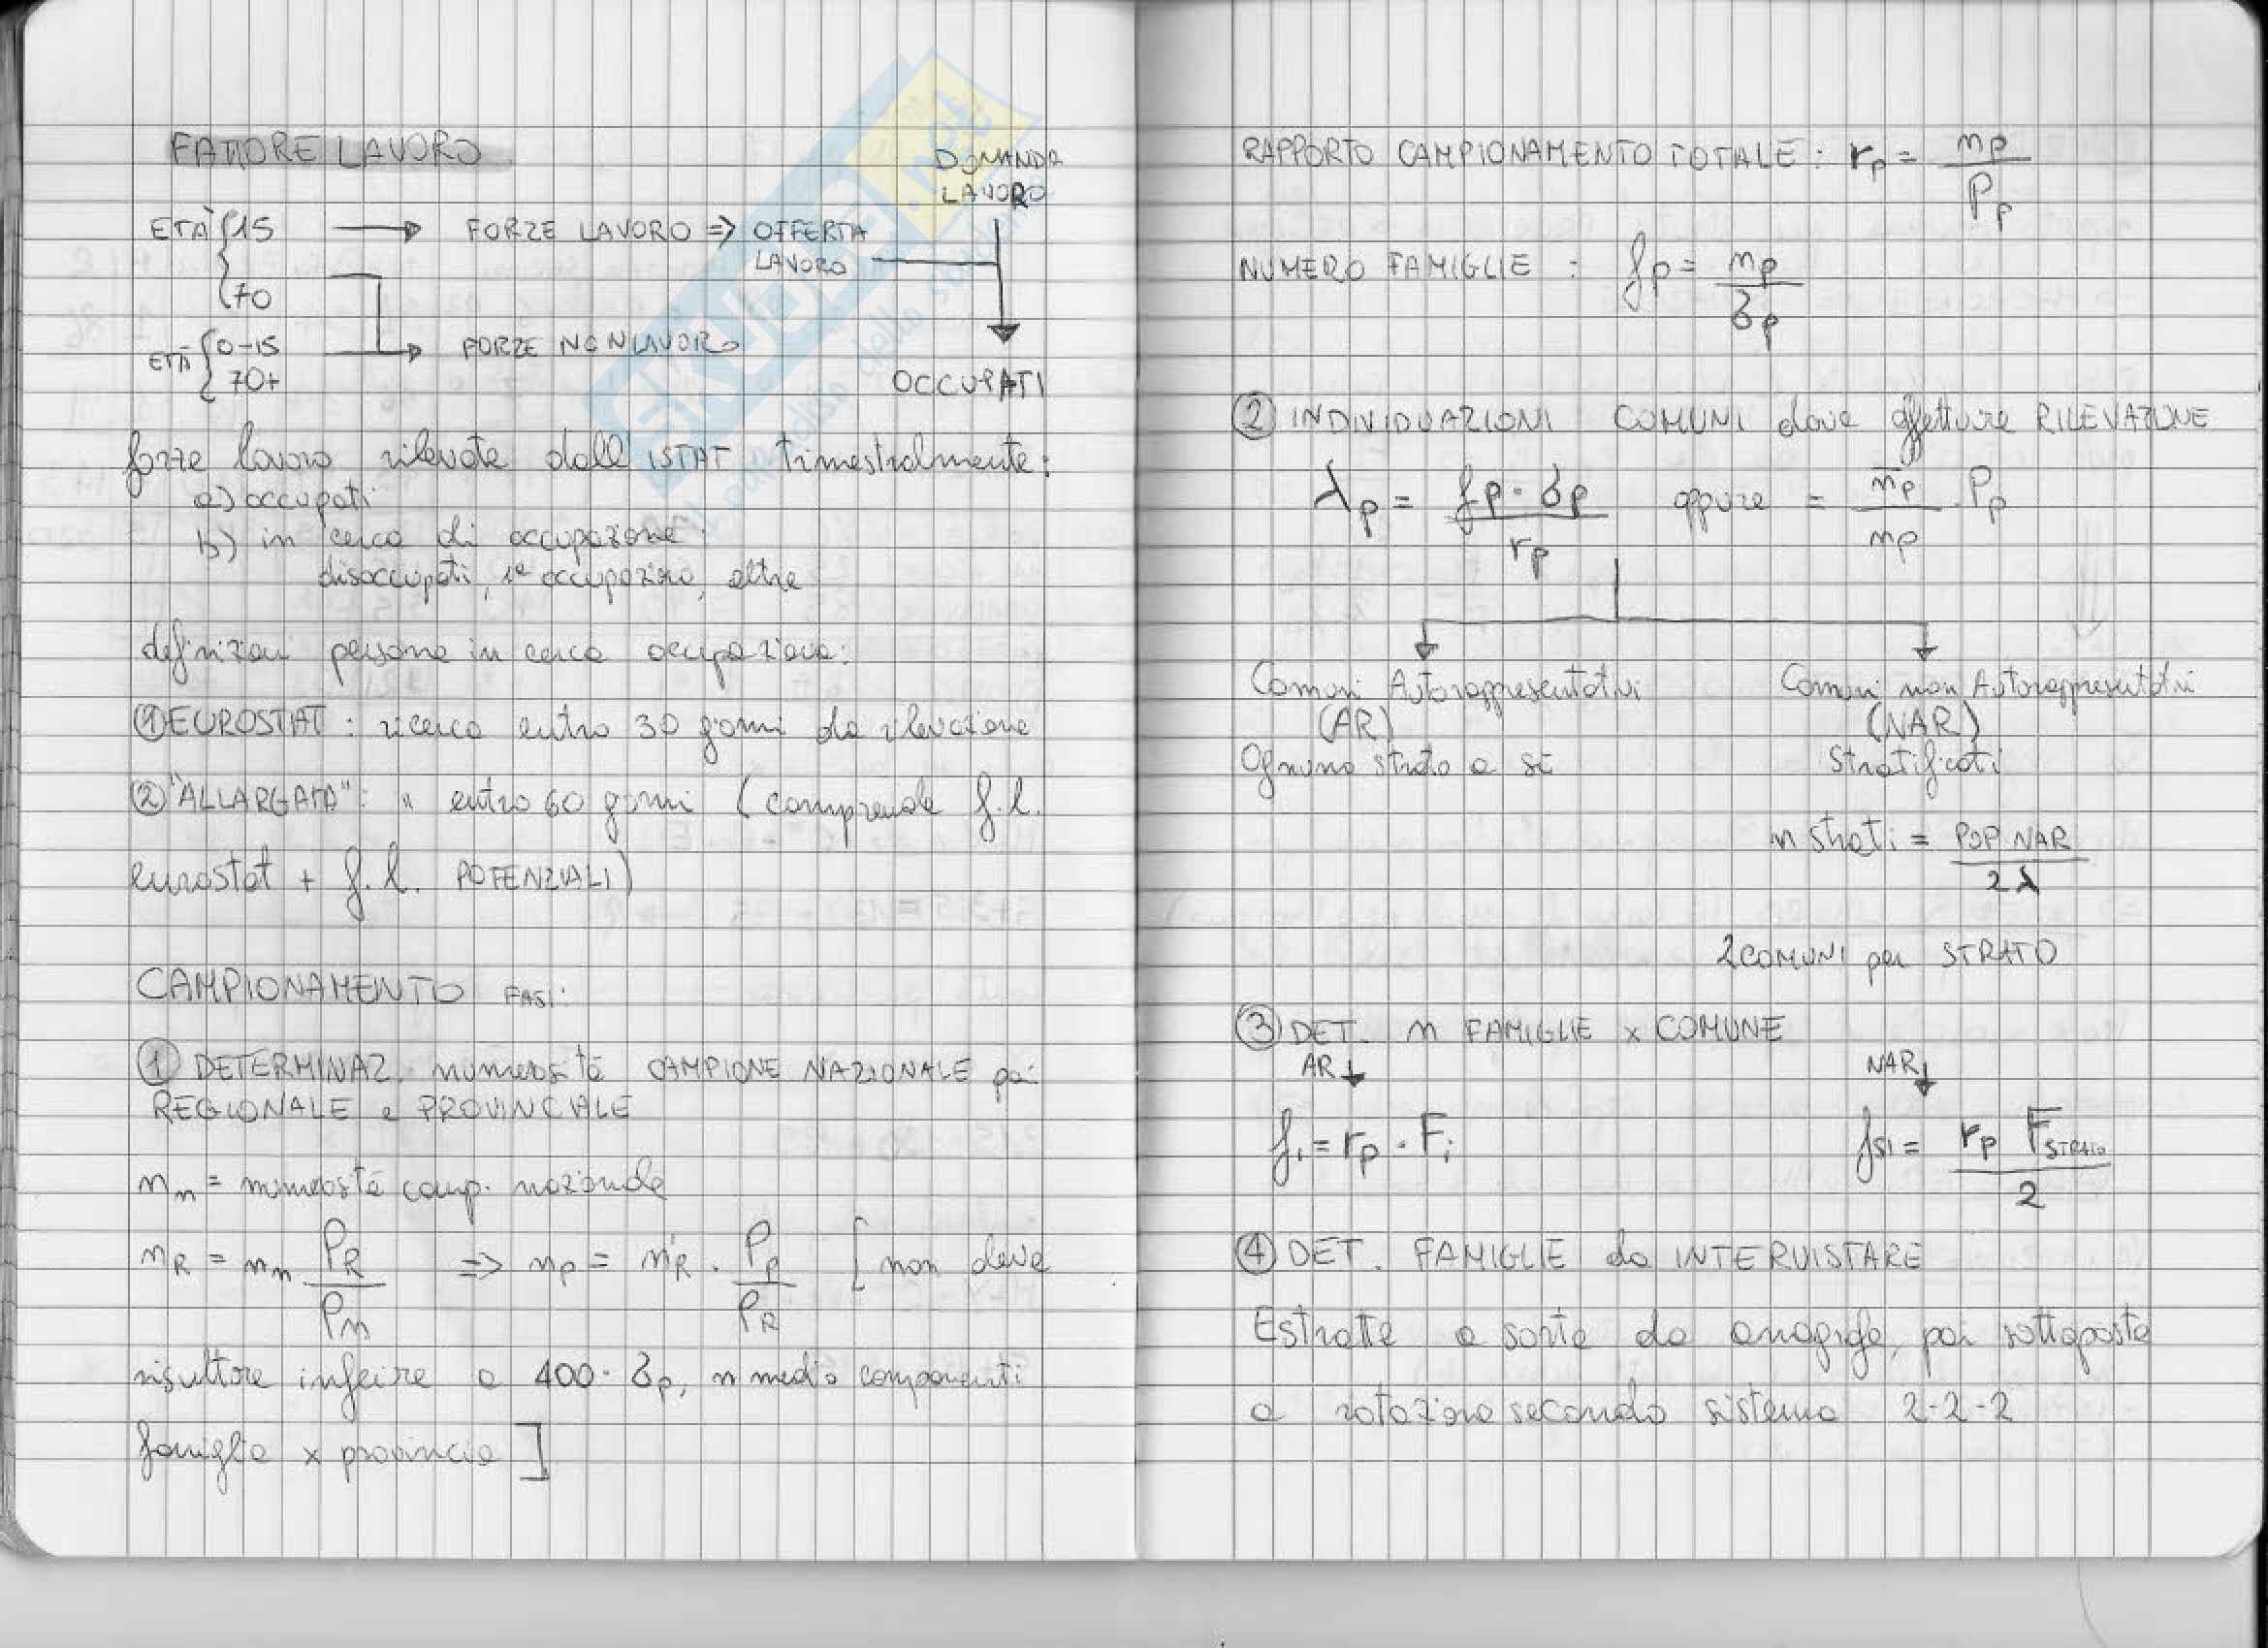 FATTORE LAVORO
DOMANDA
LAVORO
ETÀ { 15 → FORZE LAVORO ⇒ OFFERTA
LAVORO
70
ETÀ { 0-15 → FORZE NON LAVORO
70+
OCCUPATI
forze lavoro rilevate dall ISTAT trimestralmente:
a) occupati
b) in cerca di occupazione:
disoccupati, 1ª occupazione, altre
definizioni persone in cerca occupazione:
① EUROSTAT: ricerca entro 30 giorni da rilevazione
② "ALLARGATA": " entro 60 giorni (comprende f.l.
eurostat + f.l. POTENZIALI)
CAMPIONAMENTO FASI:
① DETERMINAZ. numerosità CAMPIONE NAZIONALE poi
REGIONALE e PROVINCIALE
nn = numerosità camp. nazionale
nR = nn PR/Pn ⇒ nP = nR · Pp/PR [non deve
risultare inferire a 400· δp, n medio componenti
famiglia x provincia]
RAPPORTO CAMPIONAMENTO TOTALE: rp = np/Pp
NUMERO FAMIGLIE: fp = np/δp
② INDIVIDUAZIONI COMUNI dove effettuare RILEVAZIONE
λp = fp · δp / rp oppure = n̄p/np · Pp
Comuni Autorappresentativi
(AR)
Ognuno strato a sé
Comuni non Autorappresentativi
(NAR)
Stratificati
n strati = POP NAR / 2λ
2 COMUNI per STRATO
③ DET. n FAMIGLIE x COMUNE
AR↓ NAR↓
fi = rp · Fi
fsi = rp FSTRATO / 2
④ DET. FAMIGLIE da INTERVISTARE
Estratte a sorte da anagrafe, poi sottoposte
a rotazione secondo sistema 2-2-2
SKUOLA.net
il paradiso dello studente